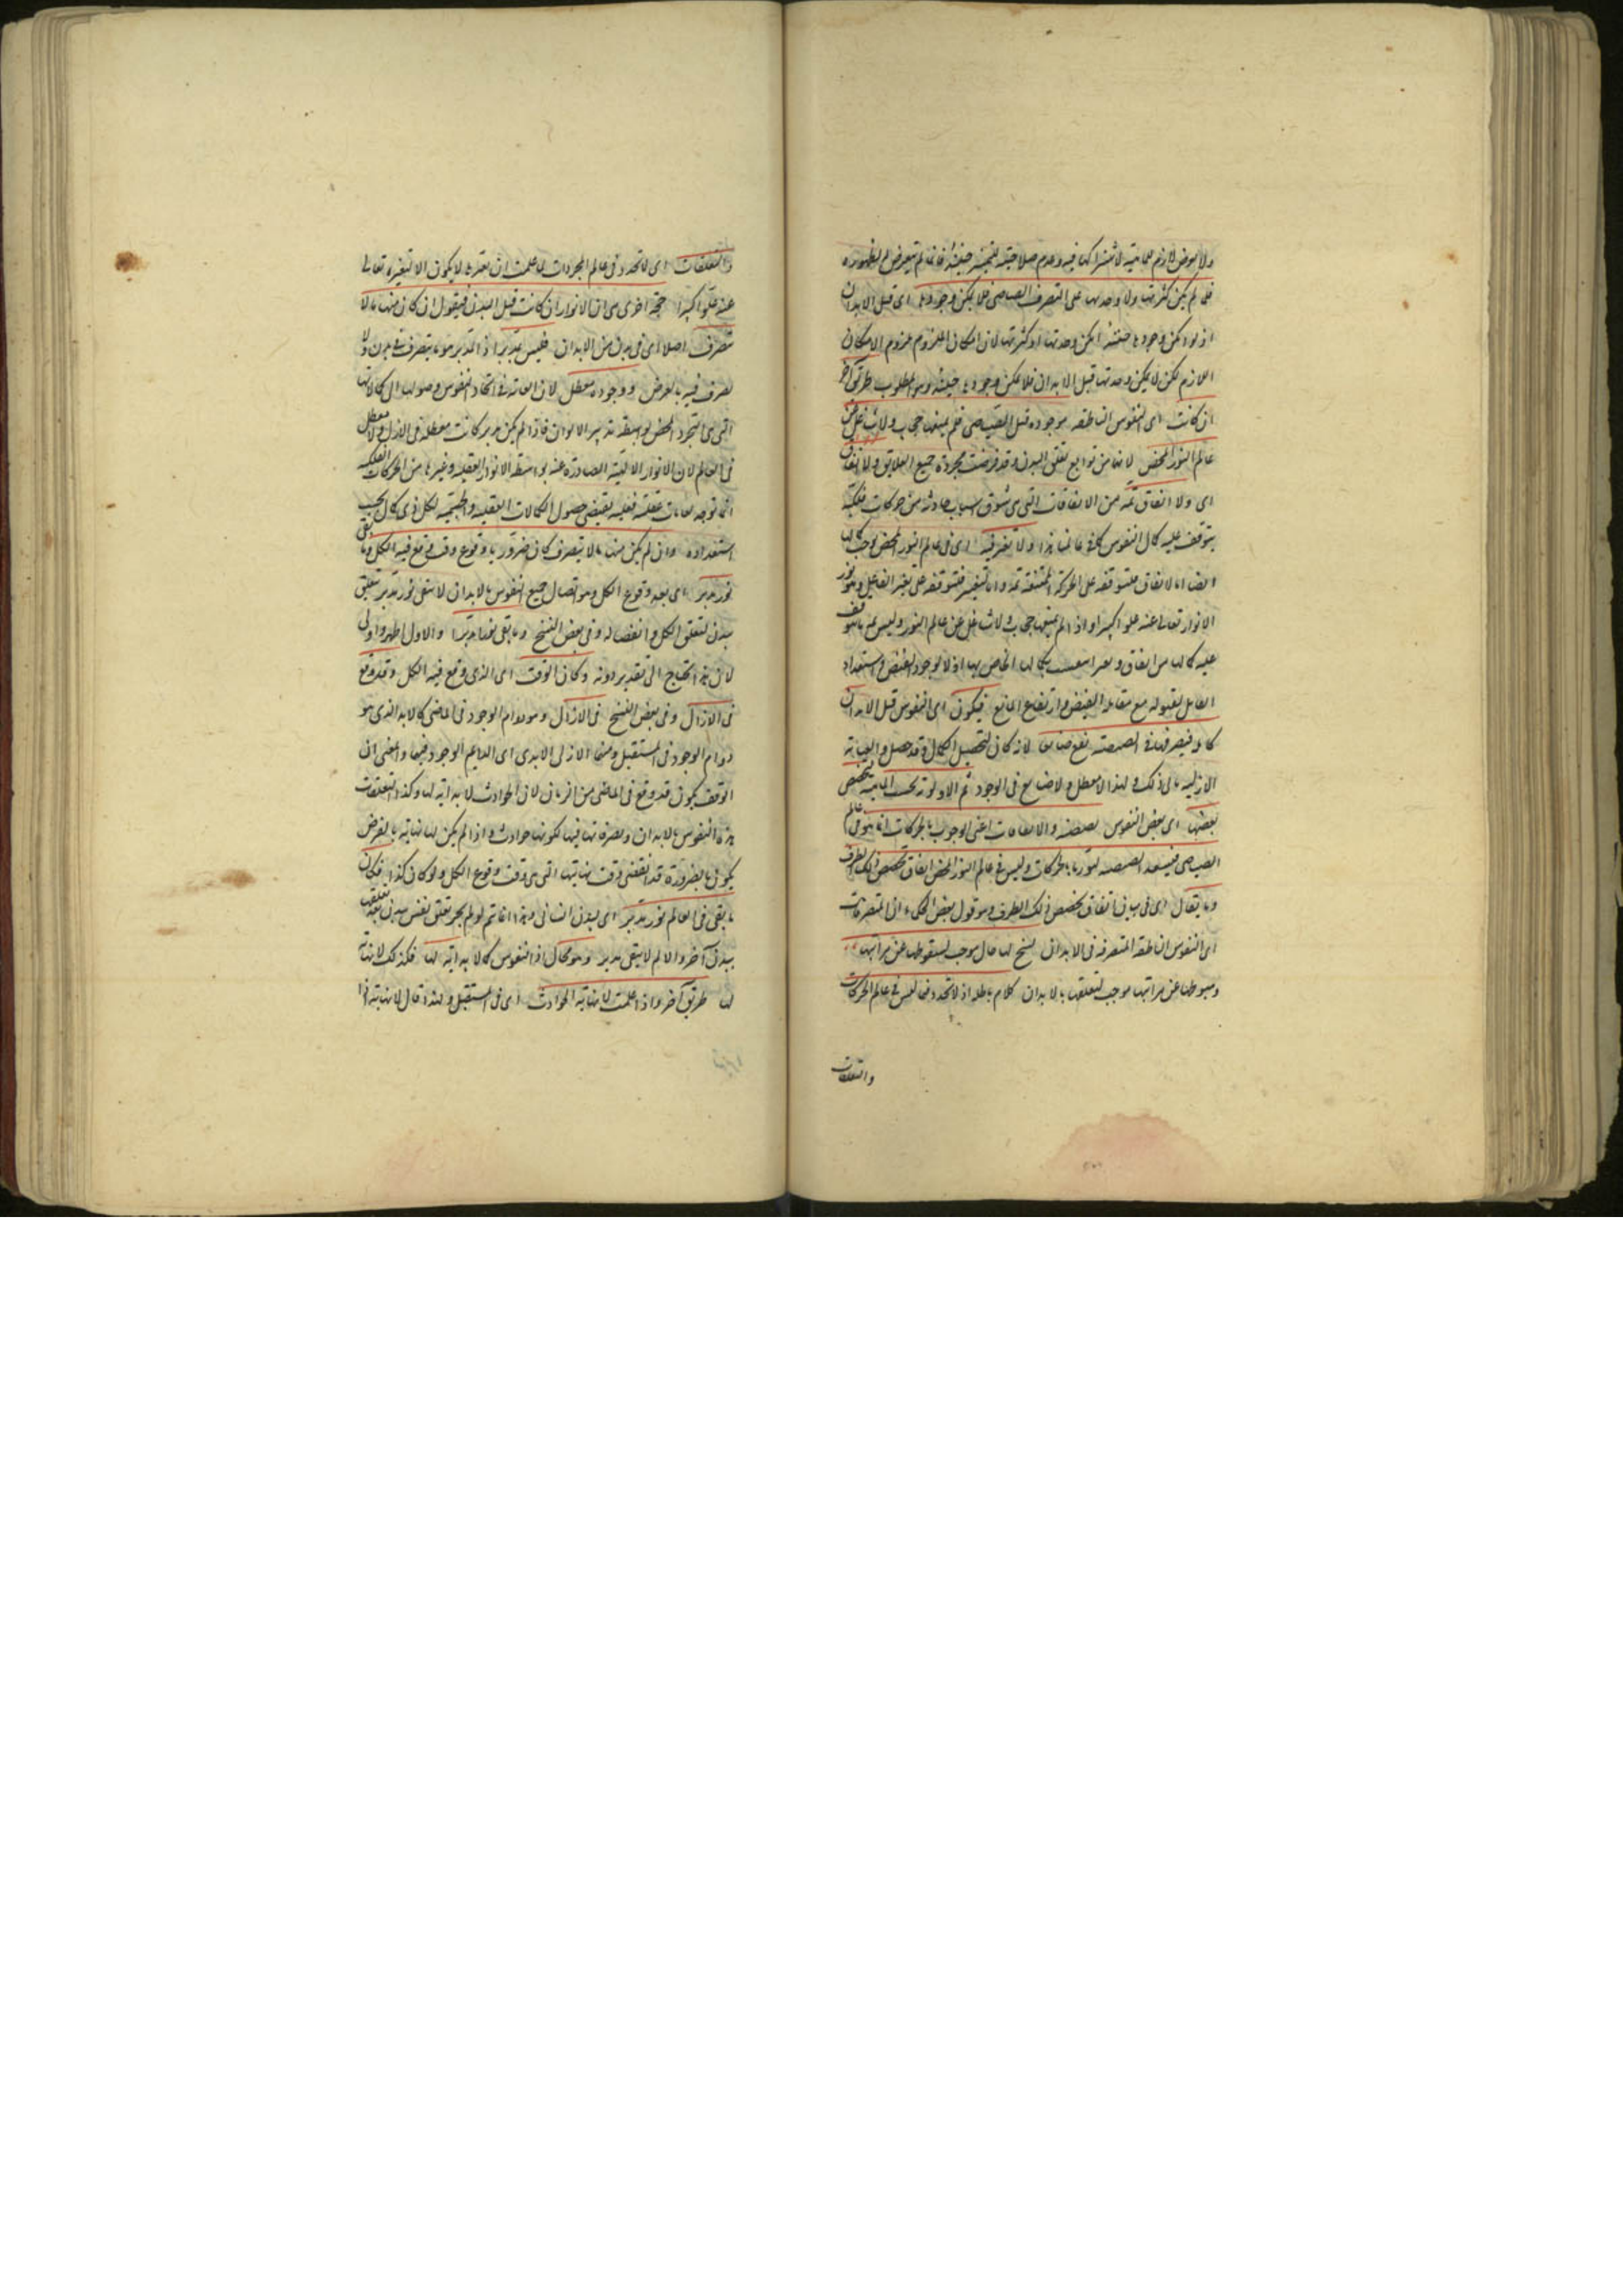 ولا لعارض لازم للماهية لاشتراكها فيه وعدم صلاحيته للتميز حينئذ فانما لم يتعرض له لظهوره
فلم يمكن كثرتها ولا وحدتها على التصرف فى الصياصى فلا يمكن وجودها اى قبل الابدان
اذ لو امكن وجودها حينئذ امكن وحدتها او كثرتها لان امكان الملزوم ملزوم لامكان
اللازم لكن لا يمكن وحدتها قبل الابدان فلا يمكن وجودها حينئذ وهو المطلوب طريق آخر
ان كانت اى النفوس الناطقة موجودة قبل الصياصى فلم يمنعها حجاب ولا شاغل عن
عالم النور المحض لانهما من توابع تعلق البدن وقد فرضت مجردة جميع العلايق ولا اتفاق
اى ولا اتفاق ثمة من الاتفاقات التى هى اسباب حادثة من حركات فلكية
يتوقف عليه كمال النفوس كما فى عالمنا هذا ولا تغير فيه اى فى عالم النور المحض يوجب كمالها
ايضا اما الاتفاق فلتوقفه على الحركة الممتنعة ثمة واما التغير فلتوقفه على تغير الفاعل وهو نور
الانوار تعالى عنه علوا كبيرا واذا لم يمنعها حجاب ولا شاغل عن عالم النور وليس ثمة ما يتوقف
عليه كمالها من اتفاق وتغير كمالها الخاص بها اذ لا وجود المفيض واستعداد
القابل لقبوله مع مقابلة المفيض وارتفاع المانع فيكون اى النفوس قبل الابدان
كاملة فتصرفها فى الصيصية يقع ضايعا لانه كان لتحصيل الكمال وقد حصل والعناية
الازلية تأبى ذلك ولهذا لا معطل ولا ضايع فى الوجود ثم لا اولوية بحسب الماهية لتخصص
بعضها اى بعض النفوس بصيصية والاتفاقات اعنى الوجوب بالحركات انما هو فى عالم
الصياصى فيستعد الصيصية لنور ما بالحركات وليس فى عالم النور المحض اتفاق تخصص ذلك الطرف
وما يقال اى فى بيان اتفاق تخصص ذلك الطرف وهو قول بعض الحكماء ان المتصرفات
اى النفوس الناطقة المتصرفة فى الابدان يسنح لها حال موجب لسقوطها عن مراتبها
وهبوطها عن مراتبها موجب لتعلقها بالابدان كلام باطل اذ لا تجدد فيما ليس فى عالم الحركات
والتعلقات
والتعلقات اى لا تجدد فى عالم المجردات لما علمت ان تغيرها لا يكون الا لتغيره تعالى
عنه علوا كبيرا حجة اخرى هى ان الانوار ان كانت قبل البدن فنقول ان كان منها ما لا
يتصرف اصلا اى فى بدن من الابدان فليس بمدبر اذ المدبر هو ما يتصرف فى بدن ولا
تصرف فيه بالفرض ووجوده معطل لان الغاية فى اتحاد النفوس وصولها الى كمالاتها
التى هى التجرد المحض بواسطة تدبير الابدان فاذا لم يكن مدبرا كانت معطلة فى الازل ولا معطل
فى العالم لان الانوار الالهية الصادرة عنه بواسطة الانوار العقلية وغيرها من الحركات الفلكية
انما توجد لغايات عقلية فعلية يقتضى حصول الكمالات العقلية والجسمية لكل ذى كمال بحسب
استعداده وان لم يكن منها ما لا يتصرف كان ضروريا وقوع وقت وقع فيه الكل وما بقى
نور مدبر اى بعد وقوع الكل وهو اتصال جميع النفوس بالابدان لا يبقى نور مدبر يتعلق
ببدن لتعلق الكل وانفصاله وفى بعض النسخ وما بقى نورا مدبرا والاول اظهر واولى
لان هذا يحتاج الى تقدير دونه وكان الوقت اى الذى وقع فيه الكل وقد وقع
فى الازال وفى بعض النسخ فى الازل وهو دوام الوجود فى الماضى كالابد الذى هو
دوام الوجود فى المستقبل ومنها الازلى الابدى اى الدايم الوجود فيهما والمعنى ان
الوقت يكون قد وقع فى الماضى من الزمان لان الحوادث لا بداية لها وكذا لتعلقات
هذه النفوس بالابدان وتصرفاتها فيها لكونها حوادث واذا لم يكن لها نهاية بالفرض
يكون بالضرورة قد انقضى وقت نهايتها التى هى وقت وقوع الكل ولو كان كذا فكان
ما بقى فى العالم نور مدبر اى لبدن انسانى وهذا انما يتم لو لم يجز تعلق نفس ببدن بعد تعلقها
ببدن آخر والا لم لا يبقى مدبر وهو محال اذ النفوس كما لا بداية لها فكذلك لا نهاية
لها طريق آخر واذ علمت لا نهاية الحوادث اى فى المستقبل ولهذا قال لا نهاية